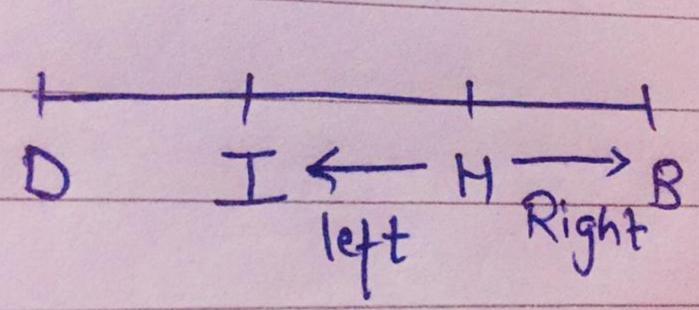 D I ← H → B
left Right